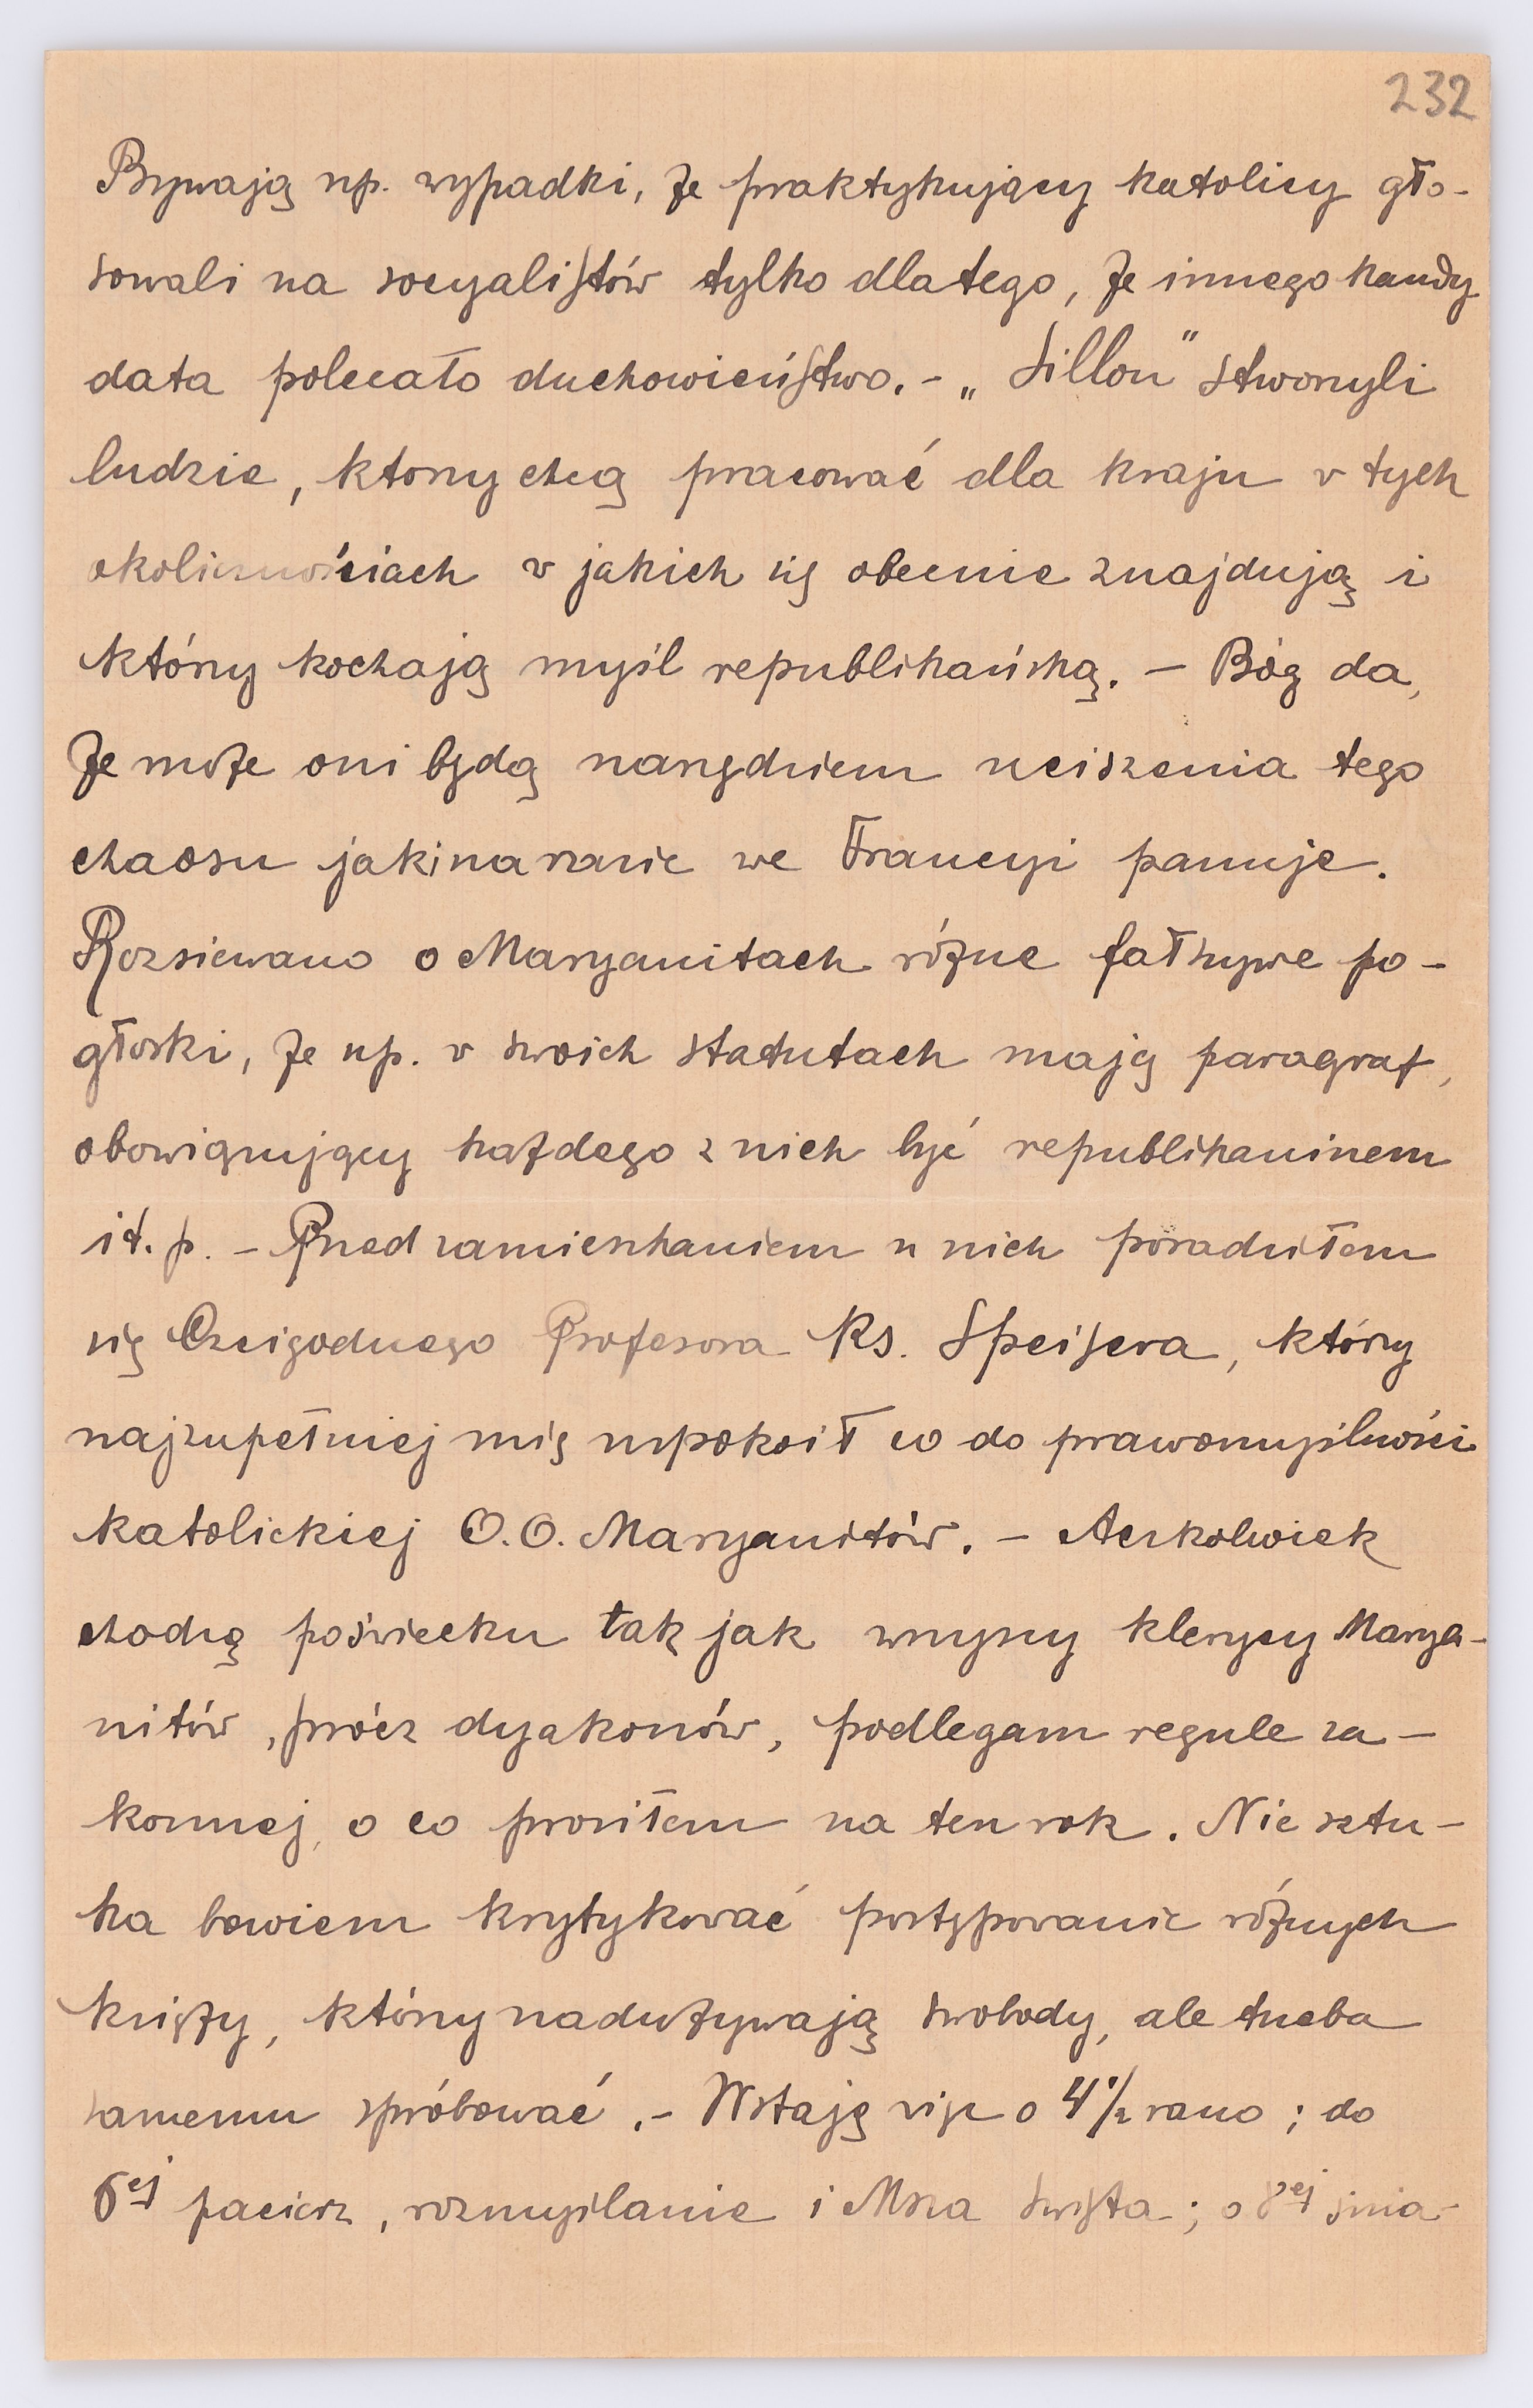 232
Bywają np. wypadki, że praktykujący katolicy gło-
sowali na socyalistów tylko dlatego, że innego kandy
data polecało duchowieństwo. - „Sillon" stworzyli
ludzie, ktorzy chcą pracować dla kraju w tych
okolicznościach w jakich się obecnie znajdują i
którzy kochają myśl republikańską. - Bóg da,
że może oni będą narzędziem uciszenia tego
chaosu jaki na razie we Francyi panuje.
Rozsiewano o Maryanitach różne fałszywe po-
głoski, że np. w swoich statutach mają paragraf,
obowiązujący każdego z nich być republikaninem
i t. p. - Przed zamieszkaniem u nich poradziłem
się Czcigodnego Profesora Ks. Speisera, który
najzupełniej mię uspokoił co do prawomyślności
katolickiej O.O. Maryanitów. - Aczkolwiek
chodzę poświecku tak jak wszyscy klerycy Marya-
nitów, prócz dyakonów, podlegam regule za-
konnej, o co prosiłem na ten rok. Nie sztu-
ka bowiem krytykować postępowanie różnych
księży, którzy nadużywają swobody, ale trzeba
samemu spróbować. - Wstaję więc o 4 1/2 rano; do
6ej pacierz, rozmyślanie i Msza święta; o 8ej śnia-